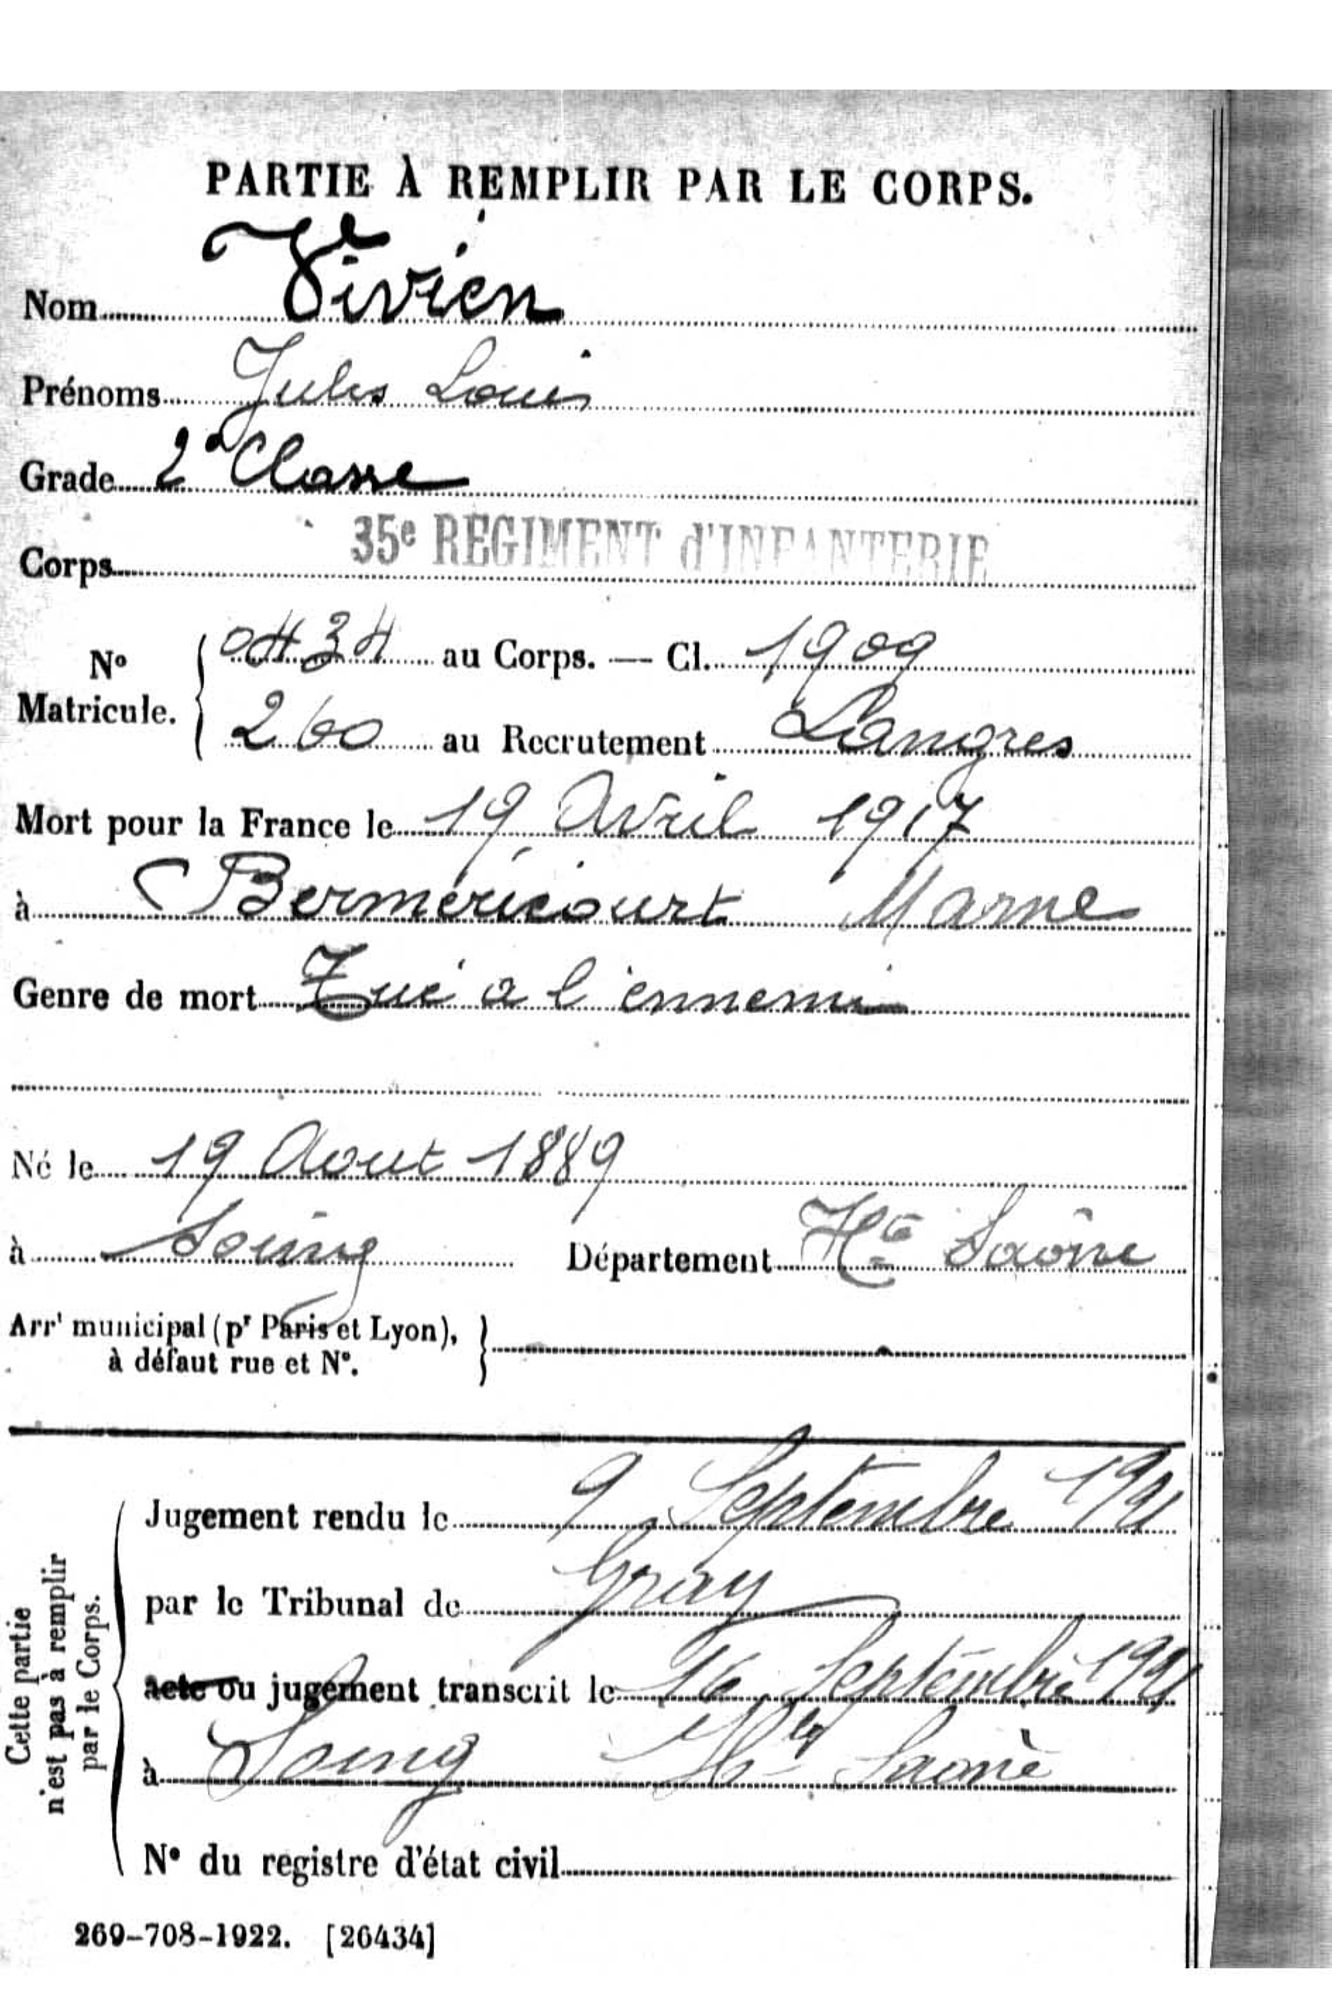 PARTIE À REMPLIR PAR LE CORPS.
Nom Vivien
Prénoms Jules Louis
Grade 2e Classe
Corps 35e REGIMENT d'INFANTERIE
No Matricule. { 0434 au Corps. — Cl. 1909
260 au Recrutement Langres
Mort pour la France le 19 Avril 1917
à Berméricourt Marne
Genre de mort Tué à l'ennemi
Né le 19 Aout 1889
à Soing Département Hte Saône
Arrt municipal (pr Paris et Lyon),
à défaut rue et No. }
Cette partie
n'est pas à remplir
par le Corps.
Jugement rendu le 9 Septembre
par le Tribunal de Gray
acte ou jugement transcrit le 16 Septembre
à Soing Hte Saône
No du registre d'état civil
269-708-1922. [26434]